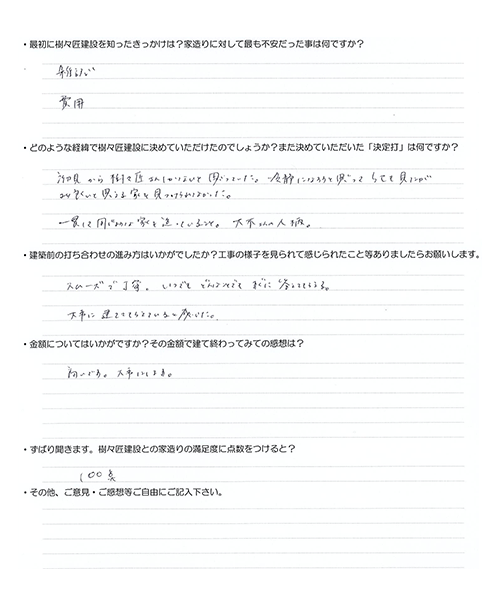 ・最初に樹々匠建設を知ったきっかけは？家造りに対して最も不安だった事は何ですか？
費用
・どのような経緯で樹々匠建設に決めていただけたのでしょうか？また決めていただいた「決定打」は何ですか？
初見から樹々匠さんしかないと思っていた。冷静になろうと思って
一貫して同じような家を造っていること。大木さんの人柄。
・建築前の打ち合わせの進み方はいかがでしたか？工事の様子を見られて感じられたこと等ありましたらお願いします。
スムーズで丁寧。いつでもどんなことでもすぐに答えてもらえる。
大事に建ててもらえていると感じた。
・金額についてはいかがですか？その金額で建て終わってみての感想は？
高いです。大事にします。
・ずばり聞きます。樹々匠建設との家造りの満足度に点数をつけると？
100点
・その他、ご意見・ご感想等ご自由にご記入下さい。